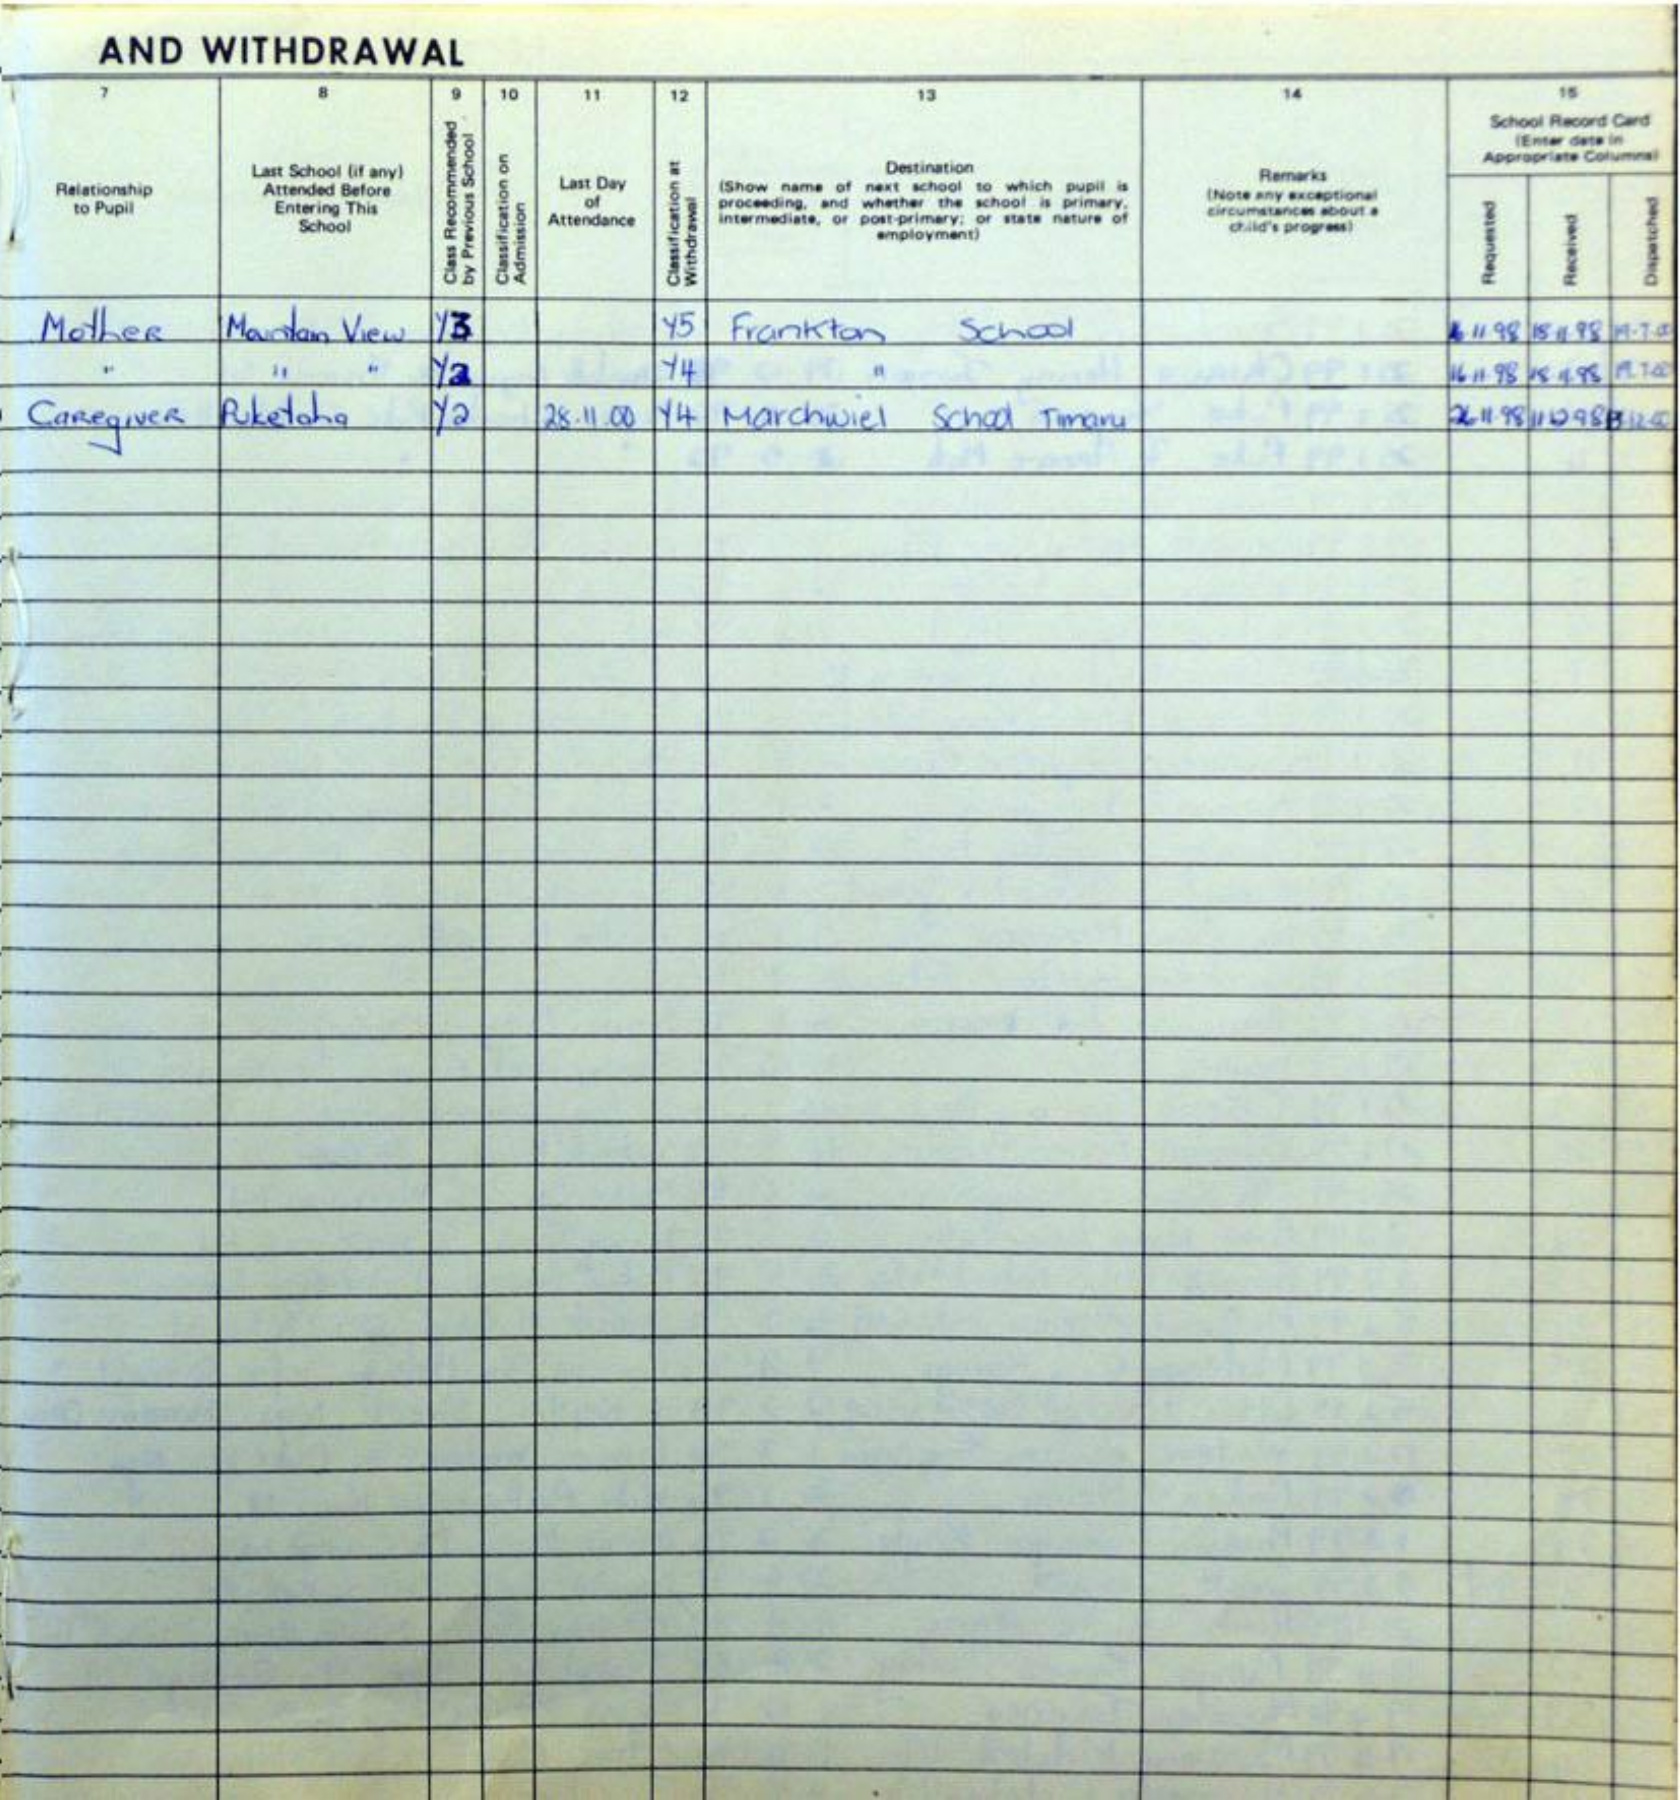 AND WITHDRAWAL
7 8 9 10 11 12 13 14 15
Relationship
to Pupil
Last School (if any)
Attended Before
Entering This
School
Class Recommended
by Previous School
Classification on
Admission
Last Day
of
Attendance
Classification at
Withdrawal
Destination
(Show name of next school to which pupil is
proceeding, and whether the school is primary,
intermediate, or post-primary; or state nature of
employment)
Remarks
(Note any exceptional
circumstances about a
child's progress)
School Record Card
(Enter date in
Appropriate Columns)
Requested
Received
Dispatched
Mother Mountain View Y3 Y5 Frankton School 18.11.98 19.7.00
" " " Y2 Y4 " 16.11.98 18.11.98 19.7.00
Caregiver Puketaha Y2 28.11.00 Y4 Marchwiel School Timaru 26.11.98 11.12.98